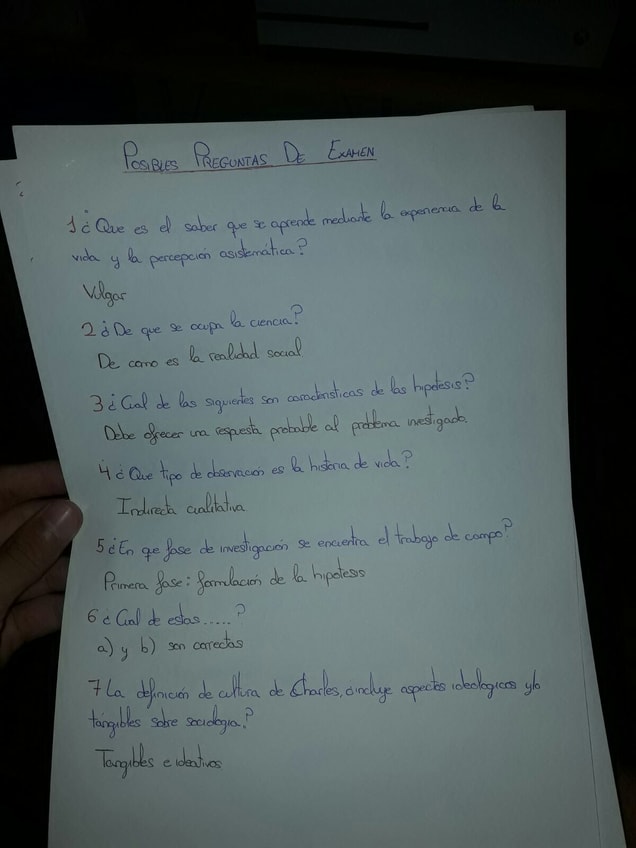 POSIBLES PREGUNTAS DE EXAMEN
1 ¿Que es el saber que se aprende mediante la experiencia de la
vida y la percepción asistemática?
Vulgar
2 ¿De que se ocupa la ciencia?
De como es la realidad social
3 ¿Cual de las siguientes son características de las hipotesis?
Debe ofrecer una respuesta probable al problema investigado.
4 ¿Que tipo de observación es la historia de vida?
Indirecta cualitativa
5 ¿En que fase de investigación se encuentra el trabajo de campo?
Primera fase: formulación de la hipotesis
6 ¿Cual de estas.....?
a) y b) son correctas
7 La definición de cultura de Charles, ¿incluye aspectos ideologicos y/o
tangibles sobre sociologia?
Tangibles e ideativos